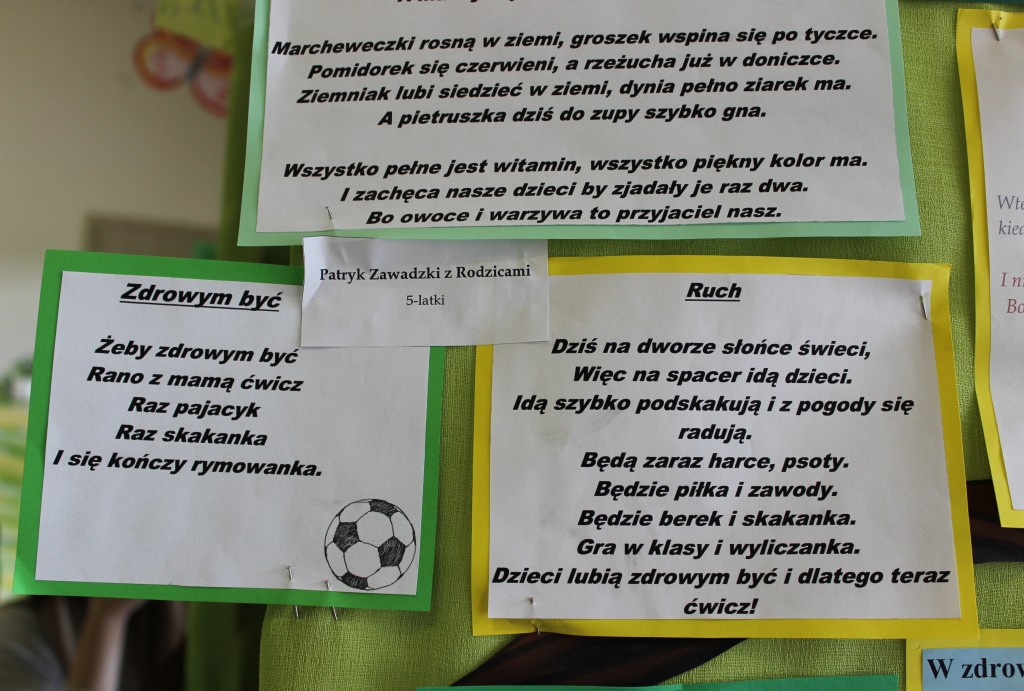 Marcheweczki rosną w ziemi, groszek wspina się po tyczce.
Pomidorek się czerwieni, a rzeżucha już w doniczce.
Ziemniak lubi siedzieć w ziemi, dynia pełno ziarek ma.
A pietruszka dziś do zupy szybko gna.
Wszystko pełne jest witamin, wszystko piękny kolor ma.
I zachęca nasze dzieci by zjadały je raz dwa.
Bo owoce i warzywa to przyjaciel nasz.
Patryk Zawadzki z Rodzicami
5-latki
Zdrowym być
Żeby zdrowym być
Rano z mamą ćwicz
Raz pajacyk
Raz skakanka
I się kończy rymowanka.
Ruch
Dziś na dworze słońce świeci,
Więc na spacer idą dzieci.
Idą szybko podskakują i z pogody się
radują.
Będą zaraz harce, psoty.
Będzie piłka i zawody.
Będzie berek i skakanka.
Gra w klasy i wyliczanka.
Dzieci lubią zdrowym być i dlatego teraz
ćwicz!
I
W